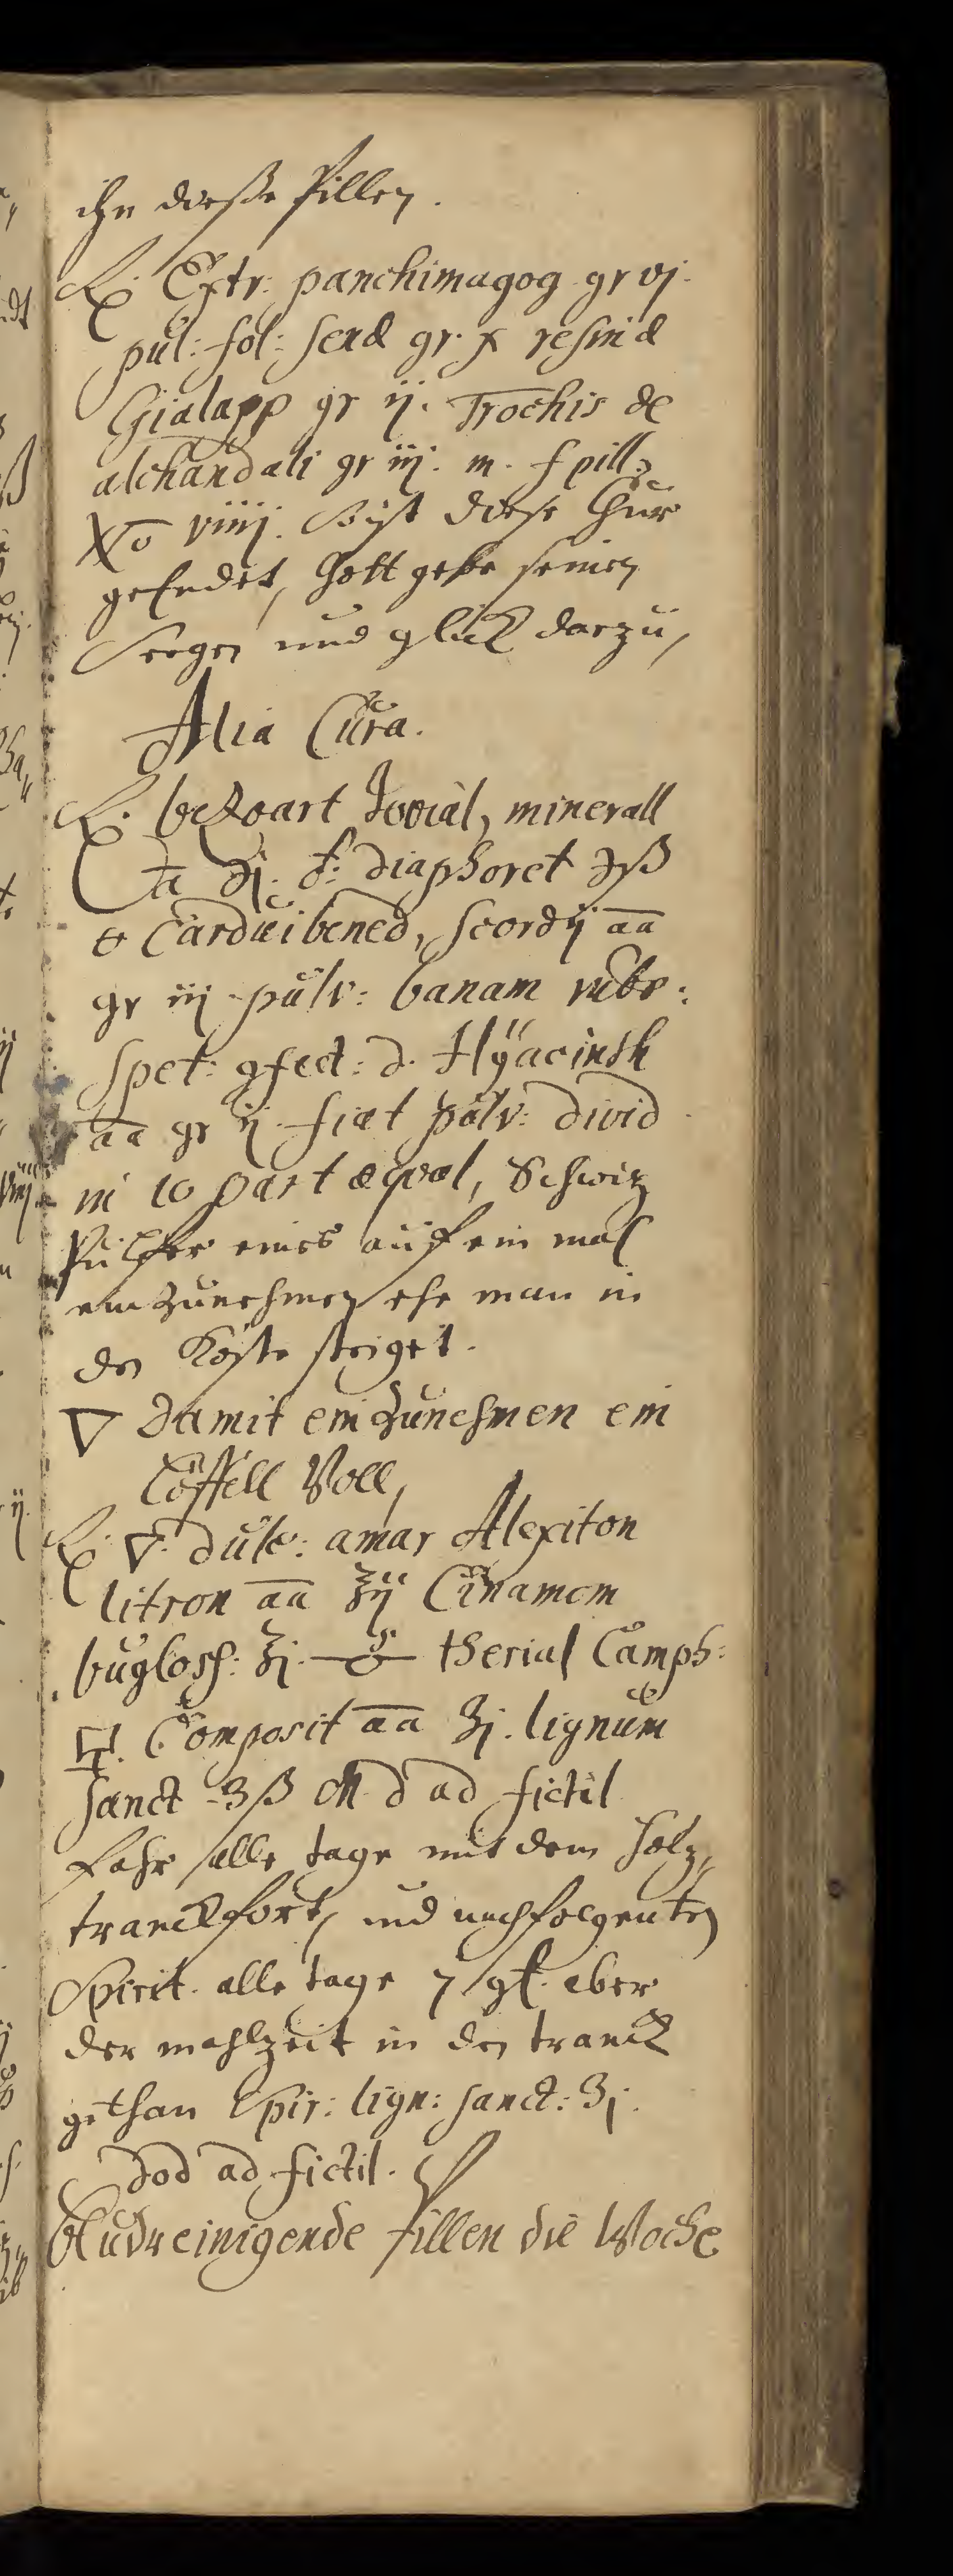 ihn diesse Pillen.
℞. Extr: panchimagog gr vj.
pul: fol: senæ gr. x resinæ
Gialapp gr ij. Trochis de
alchandali gr iij. m. f pill.
No viiij. So ist diese Chur
geEndet, Gott gebe seinen
Seegen und gluck darzu,
Alia Cura.
℞. bezoart Jovial, minerall
ā ʒj. ♂: diaphoret ʒß
Cardui bened, scordij āā
gr iij pulv: banam rubr:
spet: gfect: d. Hÿacinth
āā gr ij. fiat pulv: divid
in 10 part æqval, Schwiz
Pulfer eines auf ein mal
ein Zunehmen ehe man in
den Kasten steiget.
▽ Damit ein Zunehmen ein
Löffell Voll,
℞. ▽. dulc: amar Alexiton
litron āā ℥ij Cinamom
bugloss: ℥j. therial Camph:
Composit āā ʒj. lignum
sanct ʒß M d ad fictil
Fahr alle tage mit dem holz,,
tranck fort, und nachfolgenten
Spirit. alle tage 7 gt. aber
der mahlzeit in den tranck
gethan Spir: lign: sanct: ʒj.
dod ad fictil.
Bludreinigende Pillen die Woche